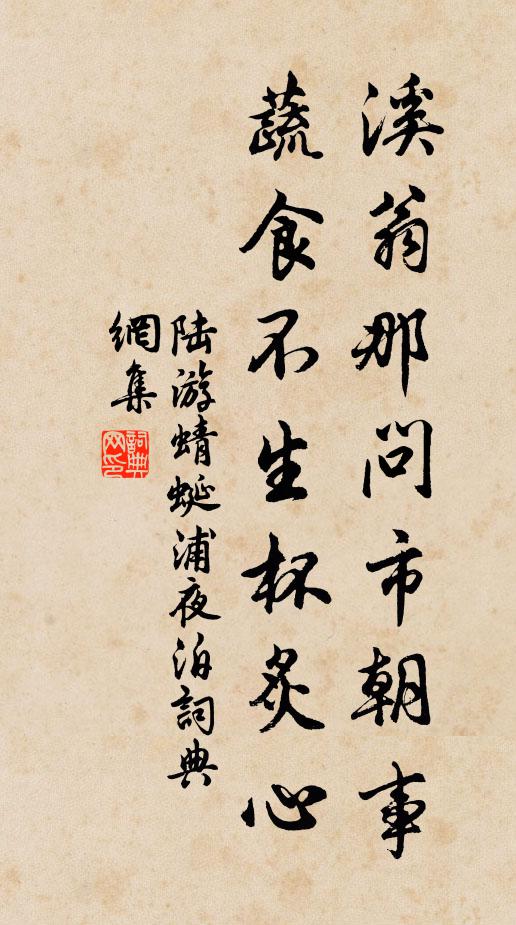 溪翁那問市朝事
蔬食不生杯炙心
陆游蜻蜓浦夜泊詞典
網集
詞典
网印